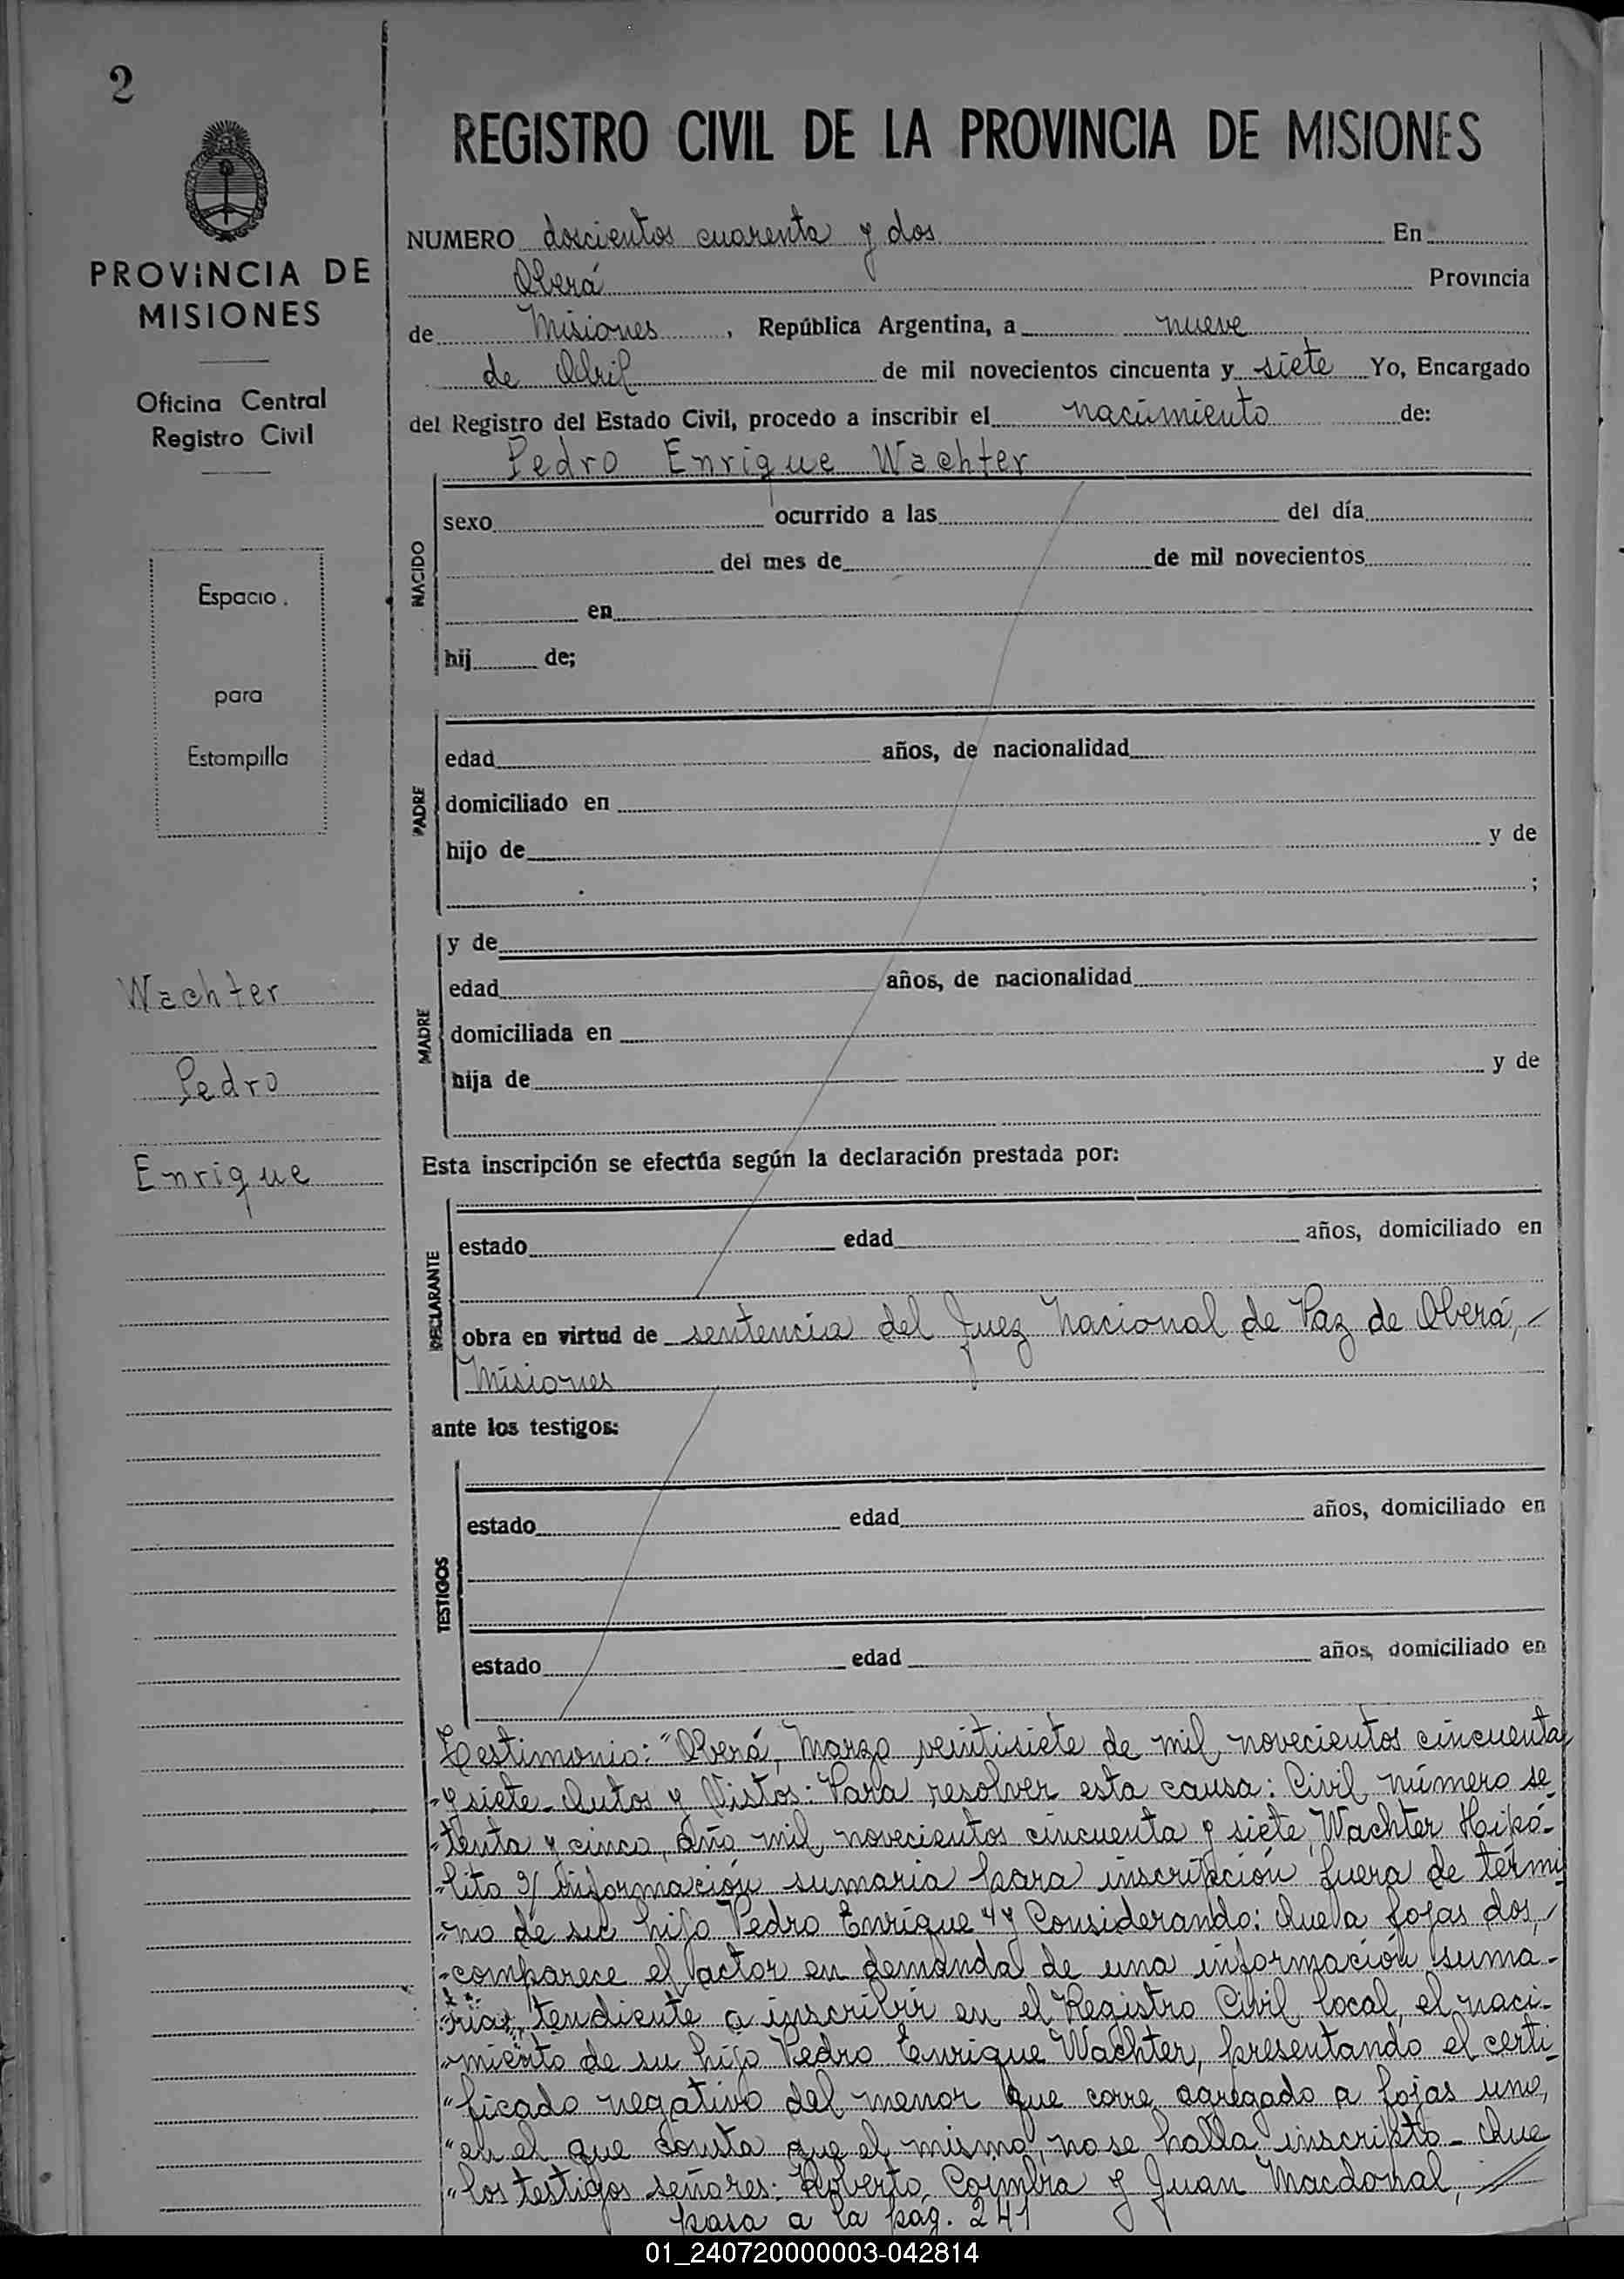 2
PROVINCIA DE
MISIONES
Oficina Central
Registro Civil
Espacio
para
Estampilla
Wachter
Pedro
Enrique
REGISTRO CIVIL DE LA PROVINCIA DE MISIONES
NUMERO doscientos cuarenta y dos En
Oberá Provincia
de Misiones, República Argentina, a nueve
de Abril de mil novecientos cincuenta y siete Yo, Encargado
del Registro del Estado Civil, procedo a inscribir el nacimiento de:
Pedro Enrique Wachter
NACIDO
sexo ocurrido a las del día
del mes de de mil novecientos
en
hij de;
PADRE
edad años, de nacionalidad
domiciliado en
hijo de y de
;
MADRE
y de
edad años, de nacionalidad
domiciliada en
hija de y de
Esta inscripción se efectúa según la declaración prestada por:
DECLARANTE
estado edad años, domiciliado en
obra en virtud de sentencia del Juez Nacional de Paz de Oberá,
Misiones
ante los testigos:
TESTIGOS
estado edad años, domiciliado en
estado edad años, domiciliado en
Testimonio: "Oberá, Marzo veintisiete de mil novecientos cincuenta
"y siete.- Autos y Vistos: Para resolver esta causa: Civil número se-
"tenta y cinco, año mil novecientos cincuenta y siete, Wachter Hipó-
"lito s/ información sumaria para inscripción fuera de térmi
"no de su hijo Pedro Enrique" y Considerando: Que a fojas dos,
"comparece el actor en demanda de una información suma-
"ria, tendiente a inscribir en el Registro Civil local, el naci-
"miento de su hijo Pedro Enrique Wachter, presentando el certi-
"ficado negativo del menor que corre agregado a fojas uno,
"en el que consta que el mismo, no se halla inscripto.- Que
"los testigos señores: Roberto Coimbra y Juan Macdonal,
pasa a la pág. 241
01_240720000003-042814